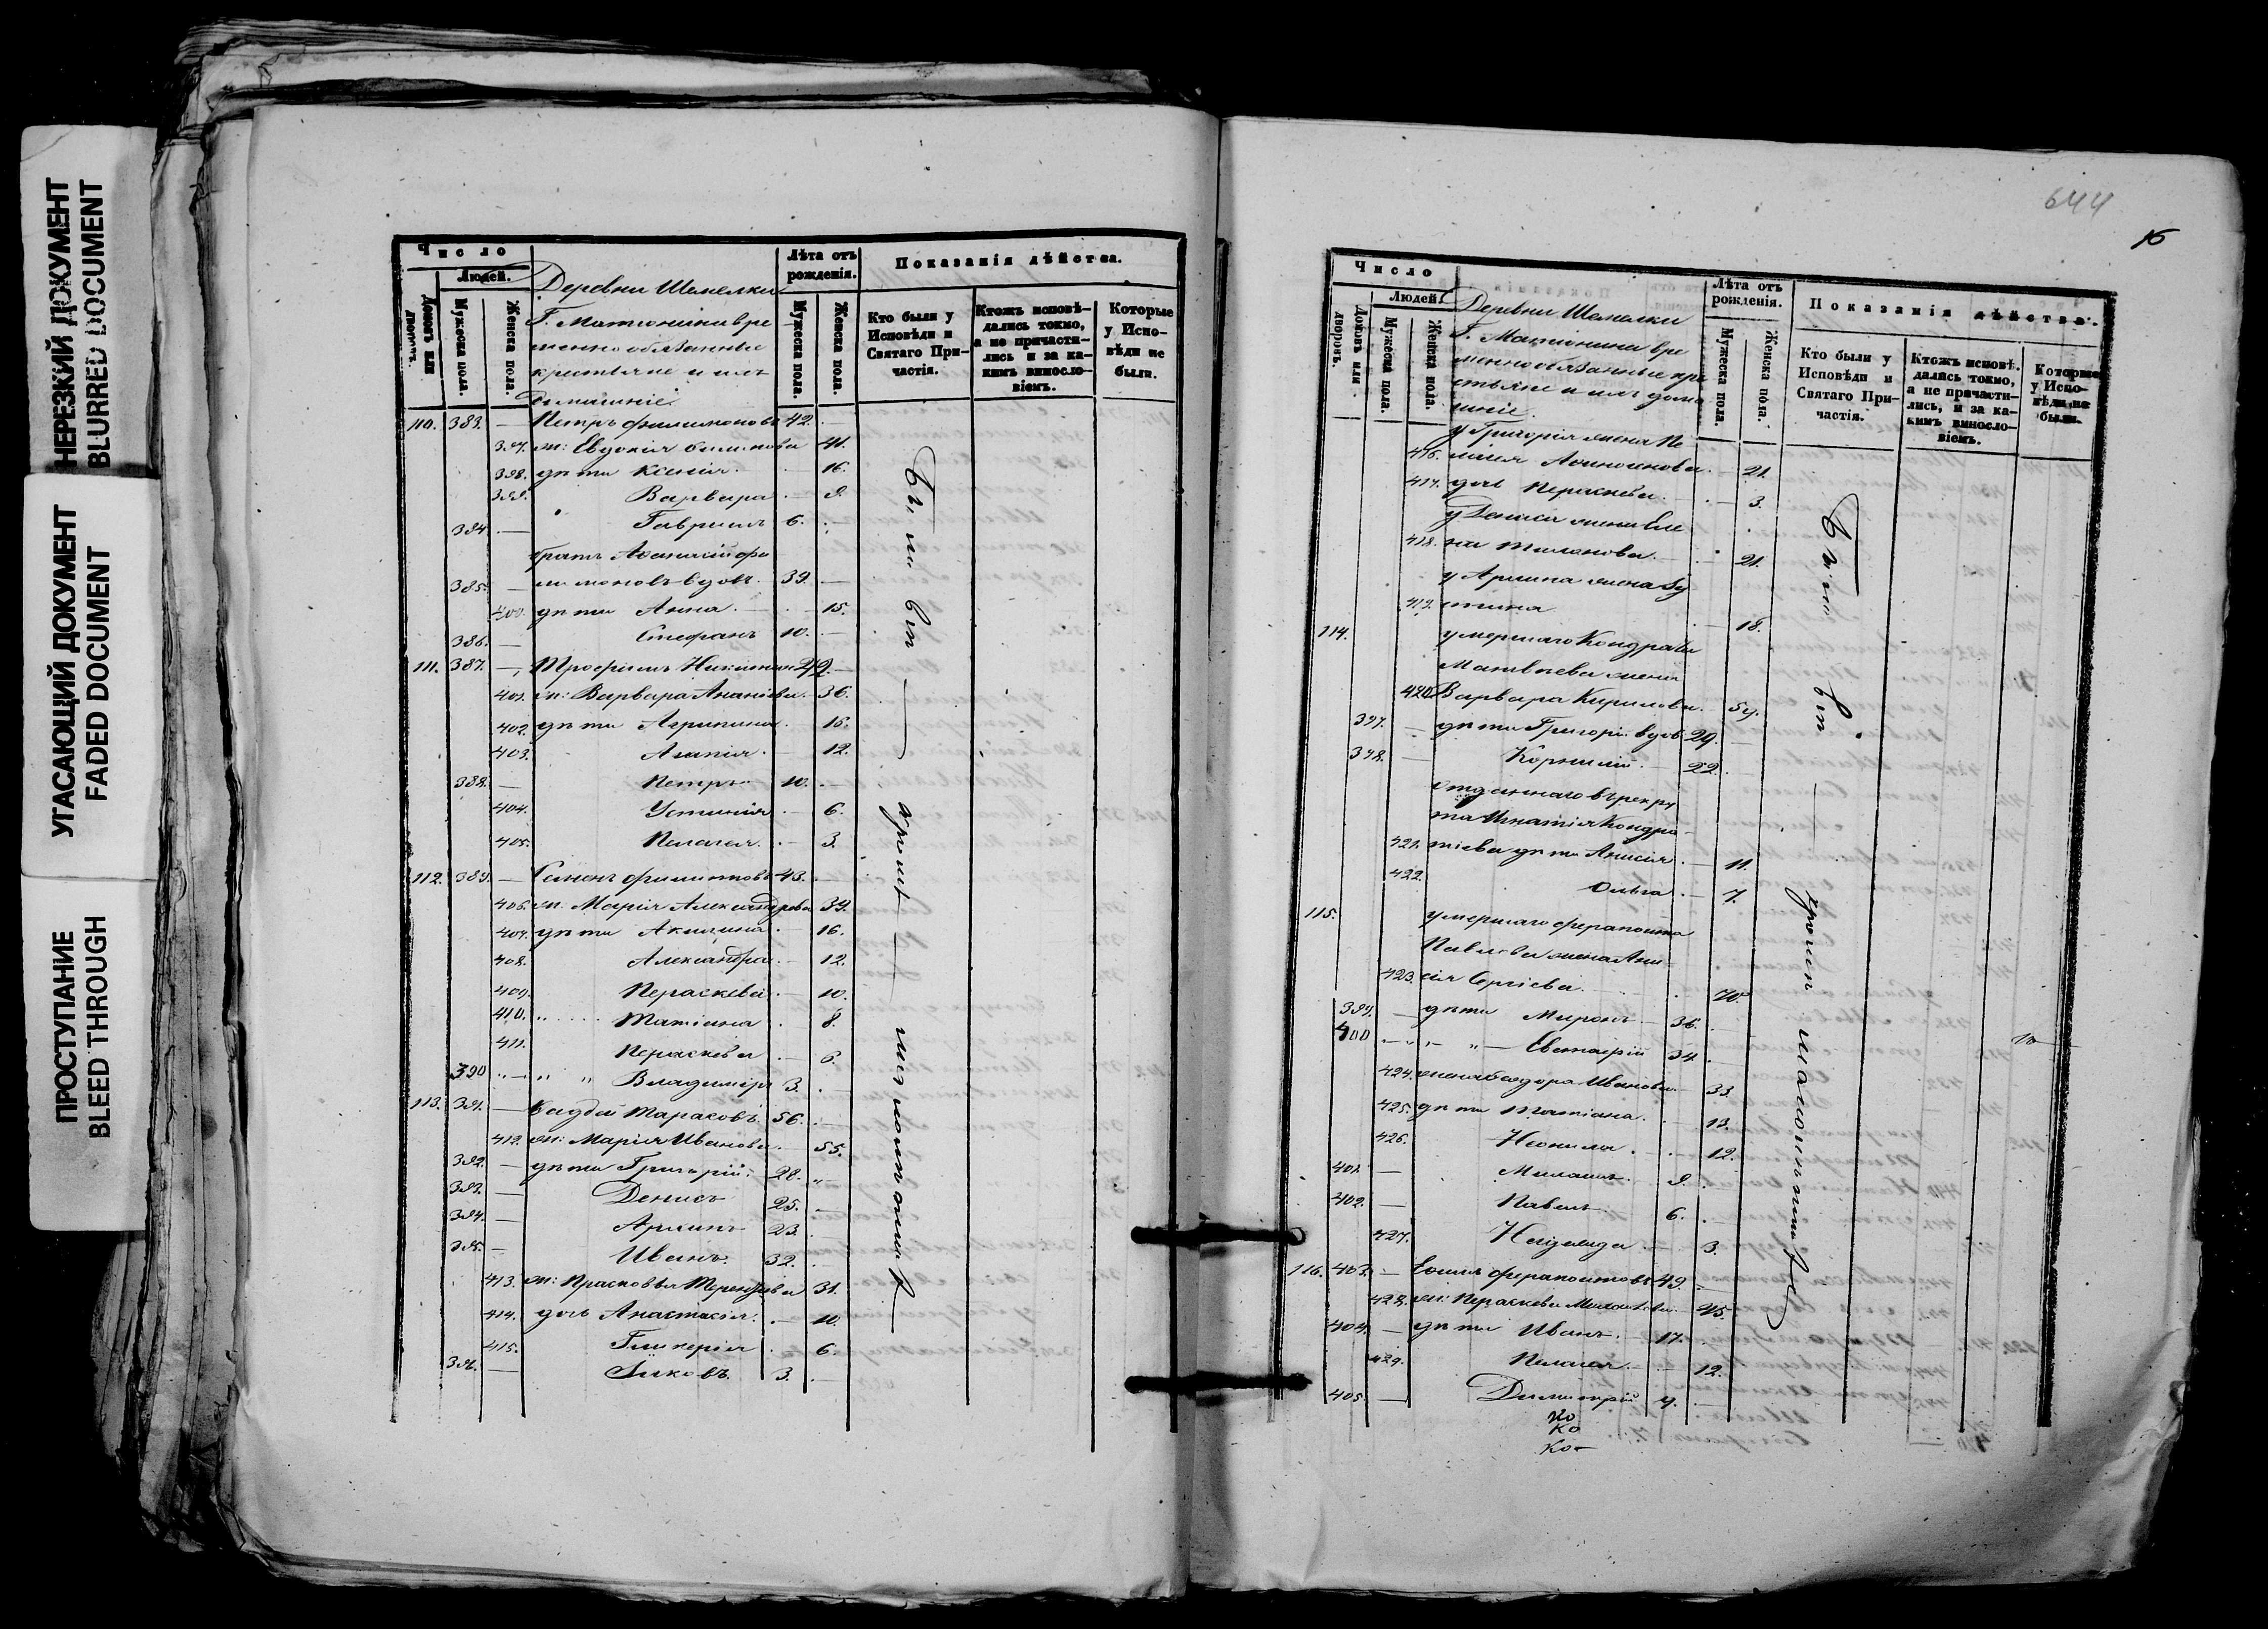 НЕРЕЗКИЙ ДОКУМЕНТ
BLURRED DOCUMENT
УГАСАЮЩИЙ ДОКУМЕНТ
FADED DOCUMENT
ПРОСТУПАНИЕ
BLEED THROUGH
Число
Людей.
Домовъ или дворовъ.
Мужеска пола.
Женска пола.
Деревни Шепелки
Г. Матюнина вре
менно обязанные
крестьяне и ихъ
домашніе.
Лѣта отъ рожденія.
Мужеска пола.
Женска пола.
Показанія дѣйства.
Кто были у Исповѣди и Святаго Причастія.
Ктожъ исповѣдались токмо, а не причастились и за какимъ винословіемъ.
Которые у Исповѣди не были.
110. 383. — Петръ Филимоновъ 42. —
397. ж: Евдокія 41.
398. дѣти Ксенія. — 16.
399. Варвара — 9.
384 — Гавріилъ 6.
братъ Аѳанасій Фи
385. — лимоновъ вдовъ. 39. —
400. дѣти Анна. — 15.
386. — Стефанъ 10. —
111. 387. — Трофимъ 42. —
401. ж: Варвара Ананіева. 36.
402. дѣти Агрипина. 16.
403. Агапія. — 12.
388. — Петръ 10. —
404. Устинія — 6.
405. Пелагея. — 3.
112. 389. — Семенъ Филимоновъ 43.
406. ж. Марія Александрова 39.
407. дѣти Акилина. — 16.
408. Александра. — 12.
409. Параскева — 10.
410. Татіана 8.
411. Параскева — 6.
390 — " " Владиміръ 3. —
113. 391. — Тарасовъ. 56. —
412. ж: Марія Иванова — 55.
392. — дѣти Григорій. 28. "
393. — Денисъ 25. —
394. — 23. —
395. — Иванъ. 32. —
413. ж: Прасковья Терентьева 31.
414. дочь Анастасія. — 10.
415. Гликерія 6.
396. — Яковъ. 3. —
644
16
Число
Людей.
Домовъ или дворовъ.
Мужеска пола.
Женска пола.
Деревни Шепелки
Г. Матюнина вре
менно обязанные кре
стьяне и ихъ дома
шніе.
Лѣта отъ рожденія.
Мужеска пола.
Женска пола.
Показанія дѣйства.
Кто были у Исповѣди и Святаго Причастія.
Ктожъ исповѣдались токмо, а не причастились, и за какимъ винословіемъ.
Которые у Исповѣди не были.
у Григорія жена Пе
416. — 21.
417. дочь Параскева. — 3.
у Дениса жена Еле
418. на — 21.
жена Ху
419. — 18.
114. умершаго Кондратія
Матвѣева жена
420. Варвара Кирилова. 59.
397. — дѣти Григорій вдовъ 29. —
398. — Корнилій. — 22. —
отданнаго въ рекру
та Игнатія Кондра
421. тіева дѣти Анисія. — 11.
422. Ольга. — 7.
115. умершаго Ферапонта
Павлова жена Ани
423. сія Сергіева. 70.
399. — дѣти Миронъ — 36. —
400 — Евстафій 34 —
424. жена Ѳеодора Иванова — 33.
425. дѣти Татіана. — 13.
426. Неонила. 12.
401. — 9. —
402. — Павелъ 6. —
427. — 3.
116. 403. — Ферапонтовъ 49. —
428. ж: Параскева 45.
404. — дѣти Иванъ. — 17. —
429. Пелагея. — 12.
405. — Димитрій 4. —
Ко
Ко
Ко-